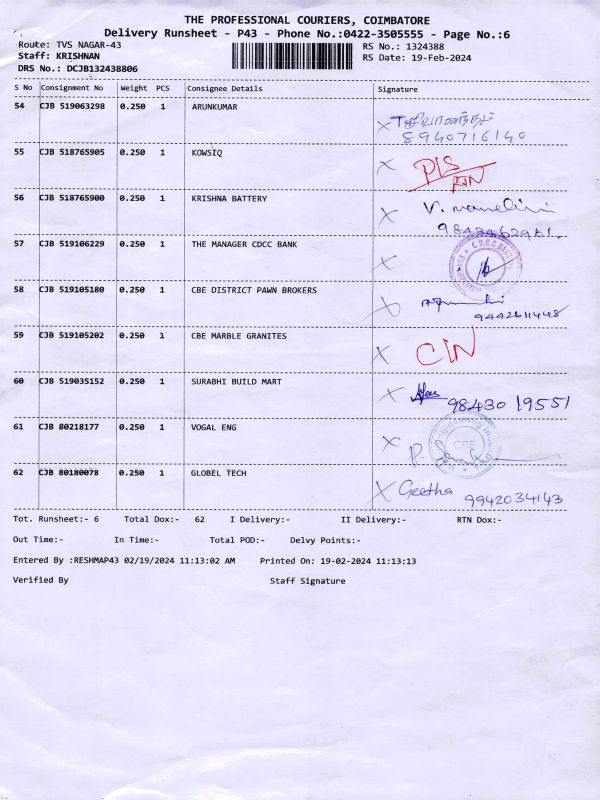 THE PROFESSIONAL COURIERS, COIMBATORE
Delivery Runsheet - P43 - Phone No.:0422-3505555 - Page No.:6
Route: TVS NAGAR-43 RS No.: 1324388
Staff: KRISHNAN RS Date: 19-Feb-2024
DRS No.: DCJB132438806
S No Consignment No Weight PCS Consignee Details Signature
54 CJB 519063298 0.250 1 ARUNKUMAR
8940716140
55 CJB 518765905 0.250 1 KOWSIQ
56 CJB 518765900 0.250 1 KRISHNA BATTERY
57 CJB 519106229 0.250 1 THE MANAGER CDCC BANK
58 CJB 519105180 0.250 1 CBE DISTRICT PAWN BROKERS
9442611448
59 CJB 519105202 0.250 1 CBE MARBLE GRANITES
CIN
60 CJB 519035152 0.250 1 SURABHI BUILD MART
98430 19551
61 CJB 80218177 0.250 1 VOGAL ENG
62 CJB 80180078 0.250 1 GLOBEL TECH
Geetha 9942034143
Tot. Runsheet:- 6 Total Dox:- 62 I Delivery:- II Delivery:- RTN Dox:-
Out Time:- In Time:- Total POD:- Delvy Points:-
Entered By :RESHMAP43 02/19/2024 11:13:02 AM Printed On: 19-02-2024 11:13:13
Verified By Staff Signature